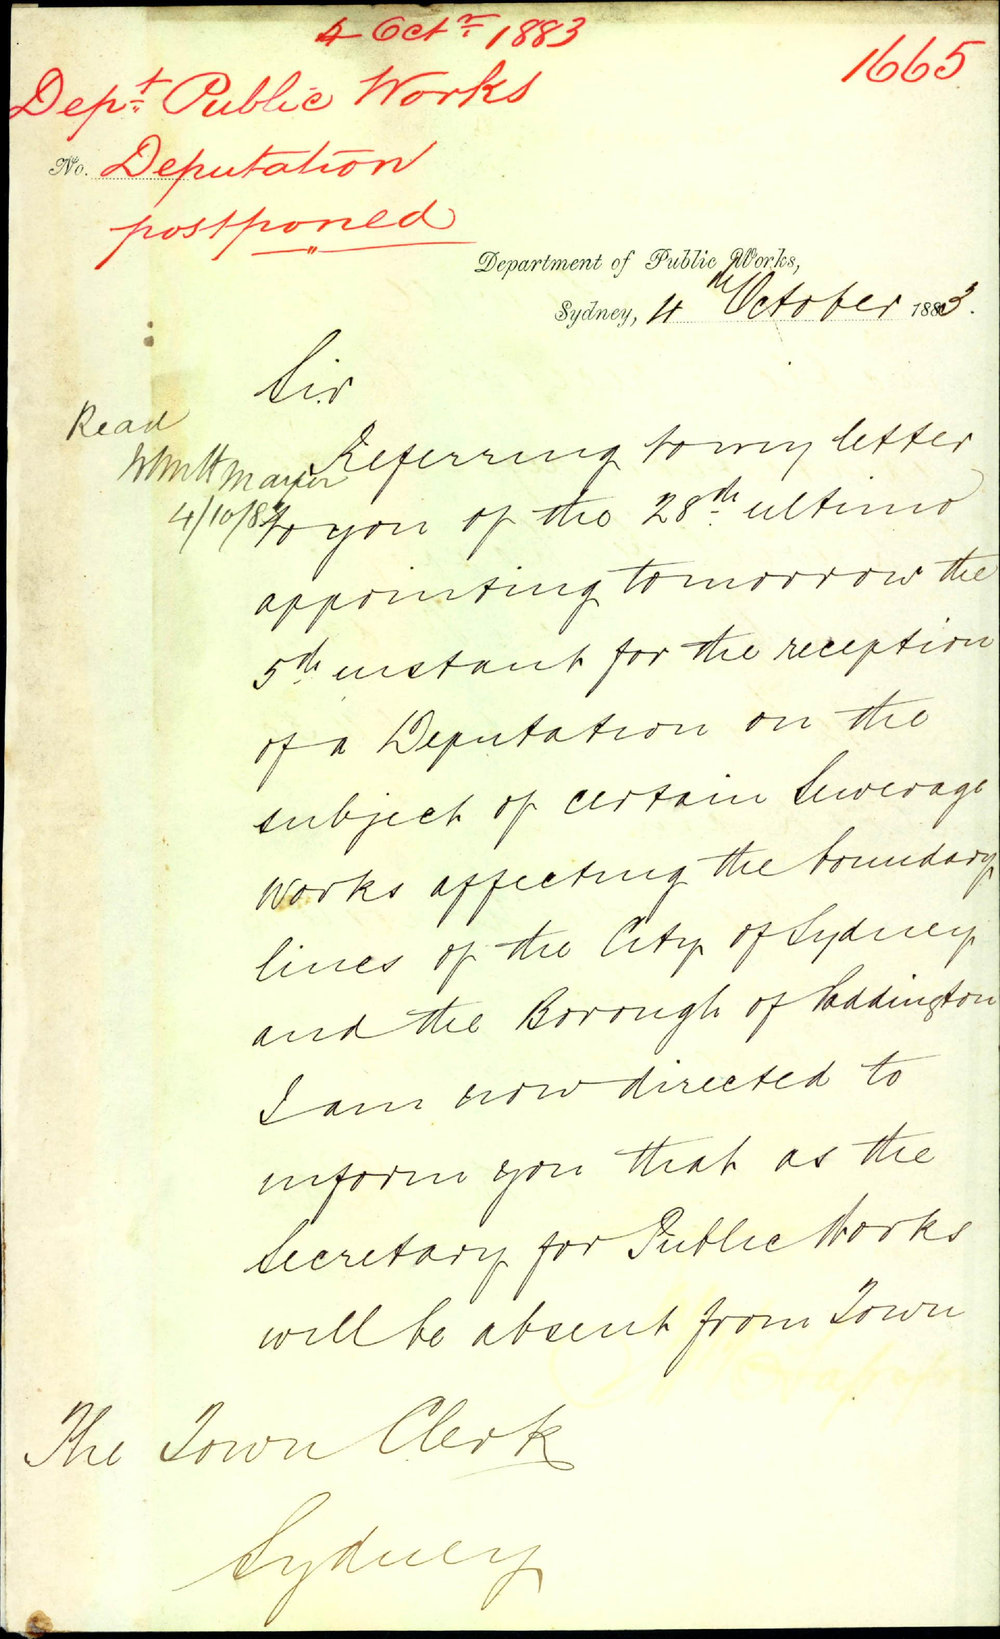 4 Octr 1883
1665
Dept Public Works
No. Deputation
postponed
Department of Public Works,
Sydney, 4th October 1883.
Sir
Read
Mayor
4/10/83
Referring to my letter
to you of the 28th ultimo
appointing tomorrow the
5th instant for the reception
of a Deputation on the
subject of certain Sewerage
Works affecting the boundary
lines of the City of Sydney
and the Borough of Paddington
I am now directed to
inform you that as the
Secretary for Public Works
will be absent from Town
The Town Clerk
Sydney